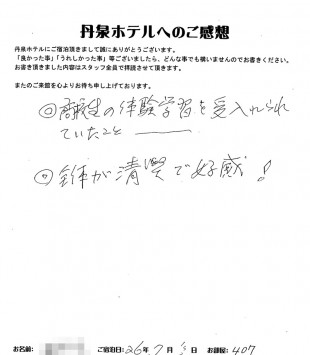 丹泉ホテルへのご感想
丹泉ホテルにご宿泊頂きまして誠にありがとうございます。
「良かった事」「うれしかった事」等ございましたら、どんな事でも構いませんのでお書きください。
お書き頂きました内容はスタッフ全員で拝読させて頂きます。
またのご来館を心よりお待ち申し上げております。
◎高校生の体験学習を受入れられ
ていたこと
◎全体が清潔で好感!
お名前: ご宿泊日:26年 7月 日 お部屋:407